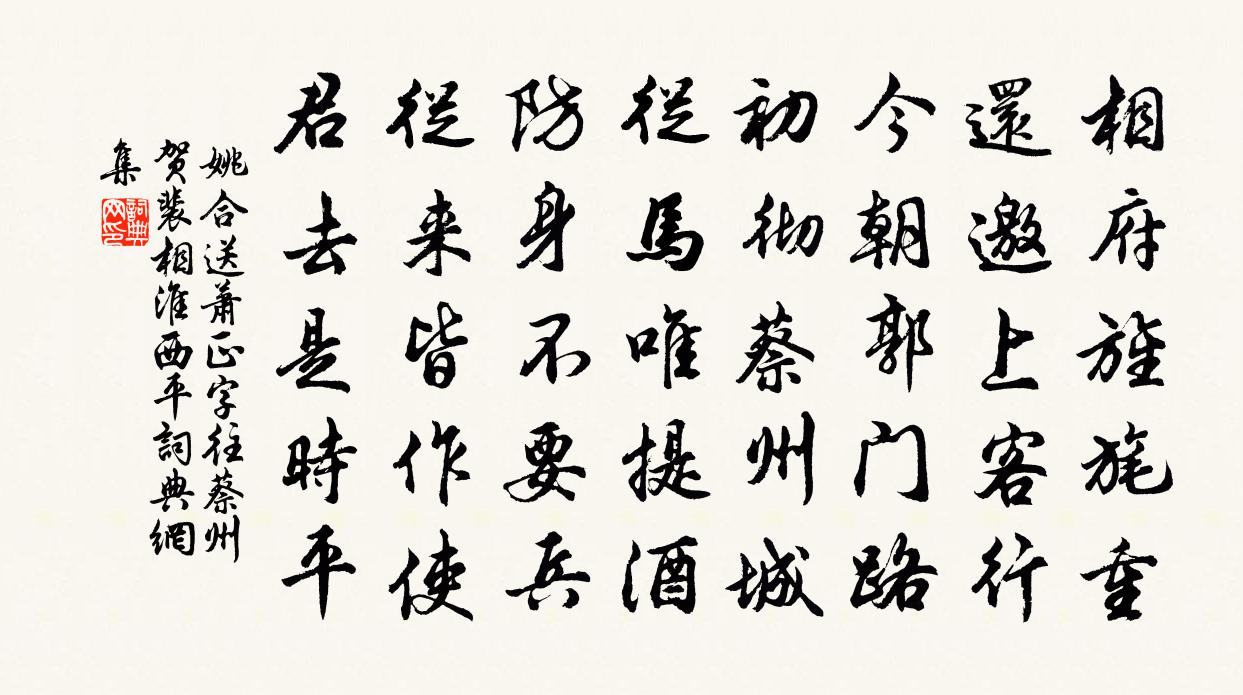 相府旌旄重
還邀上客行
今朝郭门路
初彻蔡州城
從馬唯提酒
防身不要兵
從来皆作使
君去是時平
姚合送萧正字往蔡州
贺裴相淮西平詞典網
集
詞典
网印